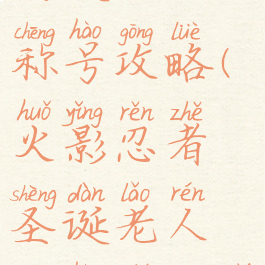 chēng hào gōng lüè
称号攻略(
huǒ yǐng rěn zhě
火影忍者
shèng dàn lǎo rén
圣诞老人